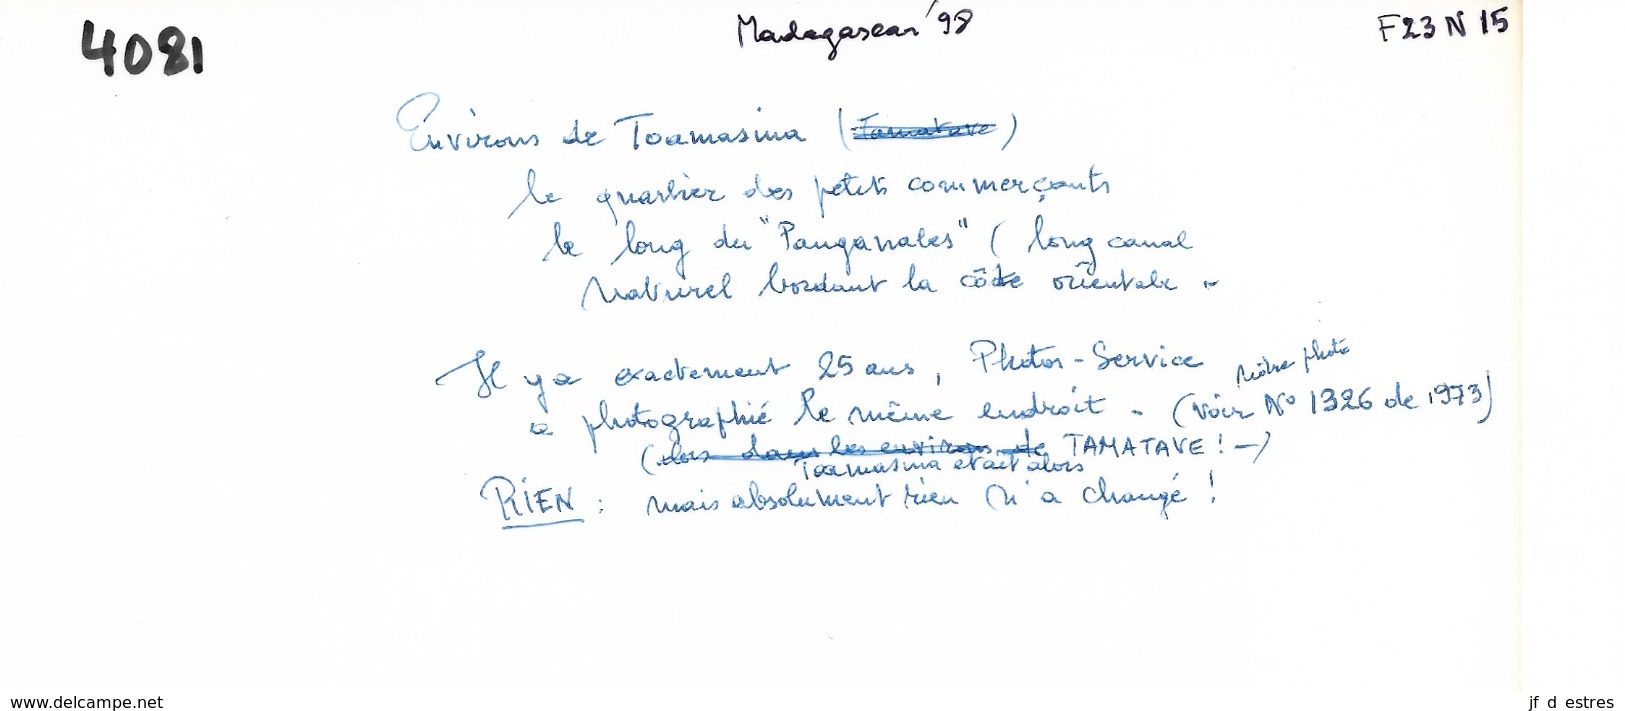 4081 Madagascar '98 F23 N 15
Environs de Toamasina (Tamatave)
le quartier des petits commerçants
le long du "Panganales" (long canal
naturel bordant la côte orientale -
Il y a exactement 25 ans, Photos-Service
a photographié le même endroit - (voir notre photo N° 1326 de 1973)
(alors dans les environs de TAMATAVE ! -)
Toamasina était alors
RIEN : mais absolument rien n'a changé !
www.delcampe.net jf d estres